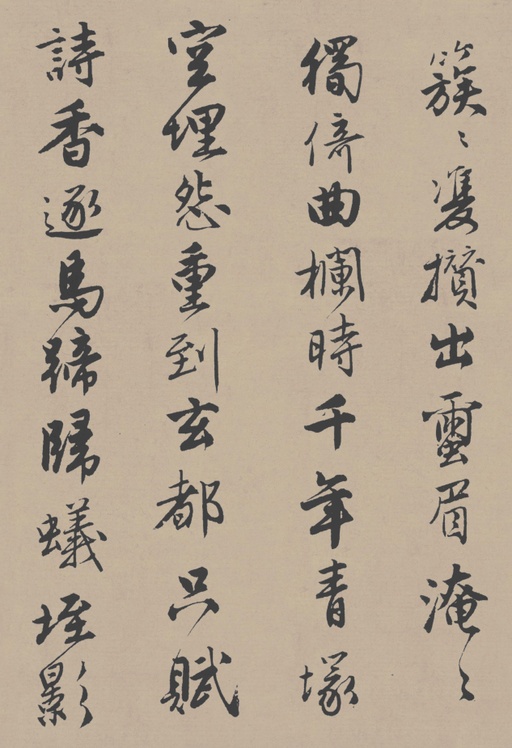 簇〻雙攢出蠒眉淹〻
獨倚曲欄時千年青塚
空埋怨重到玄都只賦
詩香逐馬蹄歸蟻垤影